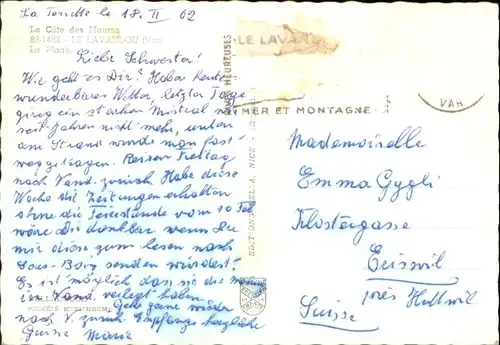 La Fossette le 18. II 62
La Côte des Maures
83-1482 - LE LAVANDOU (Var)
La Plage.
Liebe Schwester!
Wie geht es Dir? Habe heute
wunderbares Wetter, letzter Tage
ging ein starken Mistral wie
seit Jahren nicht mehr, unten
am Strand wurde man fast
weggetragen. Reisen Freitag
nach Vand. zurück. Habe diese
Woche die Zeitungen erhalten
ohne die Feierstunde vom 10 Feb
wäre Dir dankbar wenn Du
mir diese zum lesen nach
senden würdest!
Es ist möglich das sie die
in Vand. verlegt haben.
Gehe gerne wieder
nach V. zurück. Empfange herzliche
Grüsse Marie
HEUREUSES
LE LAVANDOU
MER ET MONTAGNE
VAR
NICE
Mademoiselle
Emma Gygli
Klostergasse
Eriswil
près Huttwil
Suisse